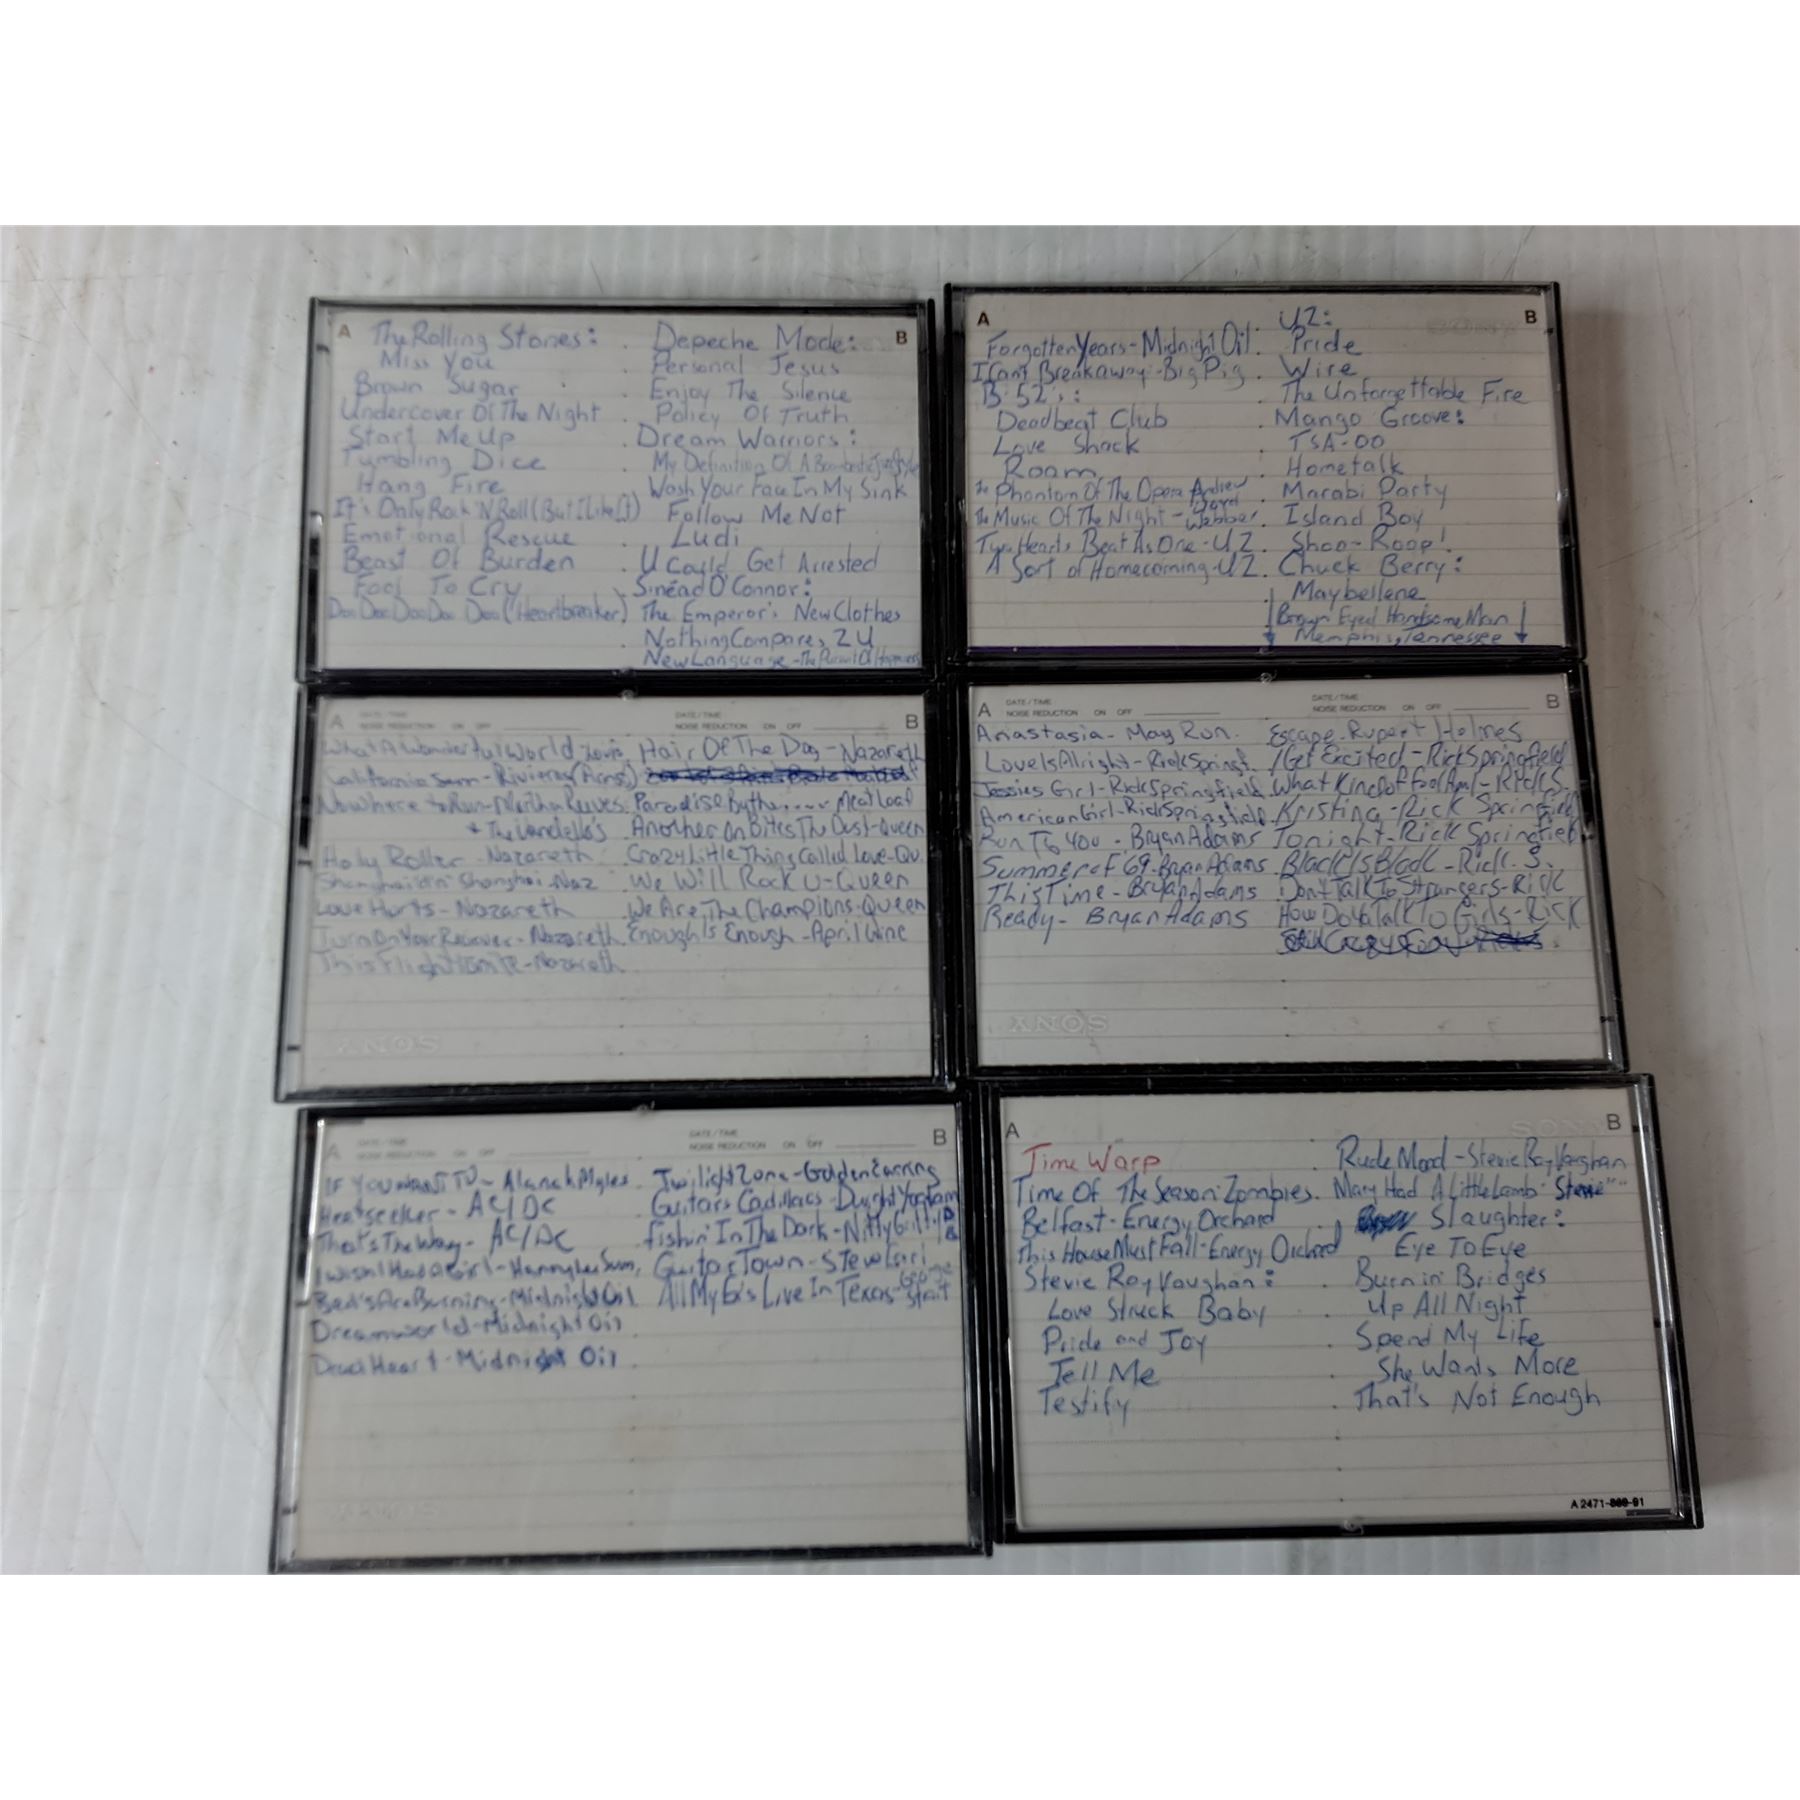 A
The Rolling Stones:
Miss You
Brown Sugar
Undercover Of The Night
Start Me Up
Tumbling Dice
Hang Fire
It's Only Rock 'N Roll (But I Like It)
Emotional Rescue
Beast Of Burden
Fool To Cry
Doo Doo Doo Doo Doo (Heartbreaker)
B
Depeche Mode:
Personal Jesus
Enjoy The Silence
Policy Of Truth
Dream Warriors:
My Definition Of A Bombastic Jazz Style
Wash Your Face In My Sink
Follow Me Not
Ludi
U Could Get Arrested
Sinéad O'Connor:
The Emperor's New Clothes
Nothing Compares 2 U
New Language - The Pursuit Of Happiness
A
Forgotten Years - Midnight Oil
I Can't Breakaway - Big Pig
B-52's:
Deadbeat Club
Love Shack
Roam
The Phantom Of The Opera Andrew
Lloyd
The Music Of The Night - Webber
Two Hearts Beat As One - U2
A Sort of Homecoming - U2
B
SONY
U2:
Pride
Wire
The Unforgettable Fire
Mango Groove:
TSA-OO
Hometalk
Marabi Party
Island Boy
Shoo-Roop!
Chuck Berry:
Maybellene
Brown Eyed Handsome Man
Memphis, Tennessee
A
DATE/TIME
NOISE REDUCTION ON OFF
What A Wonderful World - Louis
California Sun - Rivieras
Nowhere to Run - Martha Reeves
+ The Vandella's
Holy Roller - Nazareth
Shanghai'd in Shanghai - Naz
Love Hurts - Nazareth
Turn On Your Reciever - Nazareth
This Flight Tonite - Nazareth
SONY
DATE/TIME
NOISE REDUCTION ON OFF
B
Hair Of The Dog - Nazareth
Paradise By the .... Meat Loaf
Another On Bites The Dust - Queen
Crazy Little Thing Called Love - Qu.
We Will Rock U - Queen
We Are The Champions - Queen
Enough Is Enough - April Wine
A
DATE/TIME
NOISE REDUCTION ON OFF
Anastasia - May Run.
Love Is Alright - Rick Springf.
Jessies Girl - Rick Springfield
American Girl - Rick Springfield
Run To You - Bryan Adams
Summer of 69 - Bryan Adams
This Time - Bryan Adams
Ready - Bryan Adams
SONY
DATE/TIME
NOISE REDUCTION ON OFF
B
Escape - Rupert Holmes
I Get Excited - Rick Springfield
What Kind of Fool Am I - Rick S.
Kristina - Rick Springfield
Tonight - Rick Springfield
Black Is Black - Rick S.
Don't Talk To Strangers - Rick
How Do You Talk To Girls - Rick
A
DATE/TIME
NOISE REDUCTION ON OFF
If You Want To - Alannah Myles
Heatseeker - AC/DC
That's The Way - AC/DC
I Wish I Had a Girl - Henry Lee Summ.
Bed's Are Burning - Midnight Oil
Dreamworld - Midnight Oil
Dead Heart - Midnight Oil
SONY
DATE/TIME
NOISE REDUCTION ON OFF
B
Twilight Zone - Golden Earring
Guitars Cadillacs - Dwight Yoakam
Fishin' In The Dark - Nitty Gritty D
B
Guitar Town - Steve Earl
All My Ex's Live In Texas - George
Strait
A
Time Warp
Time Of The Season - Zombies
Belfast - Energy Orchard
This House Must Fall - Energy Orchard
Stevie Ray Vaughan:
Love Struck Baby
Pride and Joy
Tell Me
Testify
B
SONY
Rude Mood - Stevie Ray Vaughan
Mary Had A Little Lamb - Stevie " "
Slaughter:
Eye To Eye
Burnin' Bridges
Up All Night
Spend My Life
She Wants More
That's Not Enough
A 2471-869-91